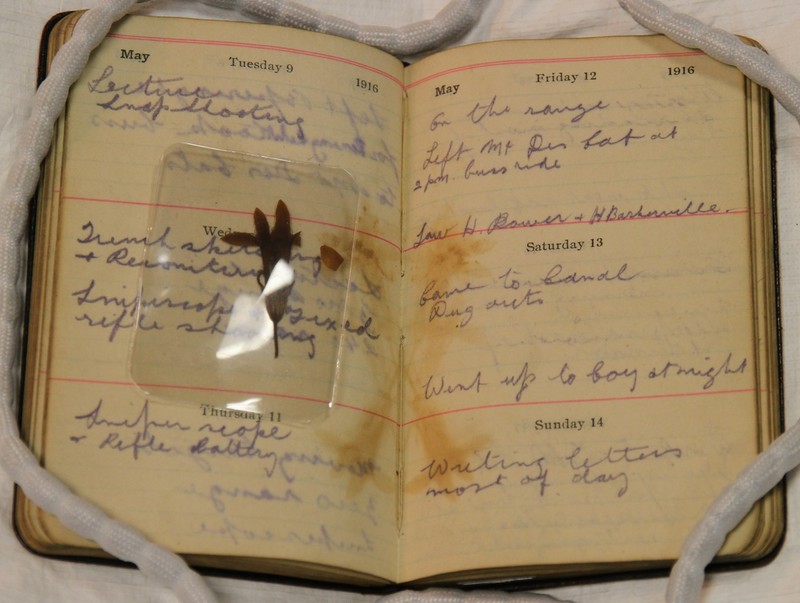 May
Tuesday 9
1916
Lectures on
Snap Shooting
Trench sketching
+ Reconitring
Sniperscope + fixed
rifle shooting
Thursday 11
Sniper scope
+ Rifle Battery
May
Friday 12
1916
On the range
Left Mt Des Cat at
2 pm. buss ride
Saw H. Bower + H Baskerville.
Saturday 13
Came to Canal
Dug outs
Went up to Coy at night
Sunday 14
Writing letters
most of day